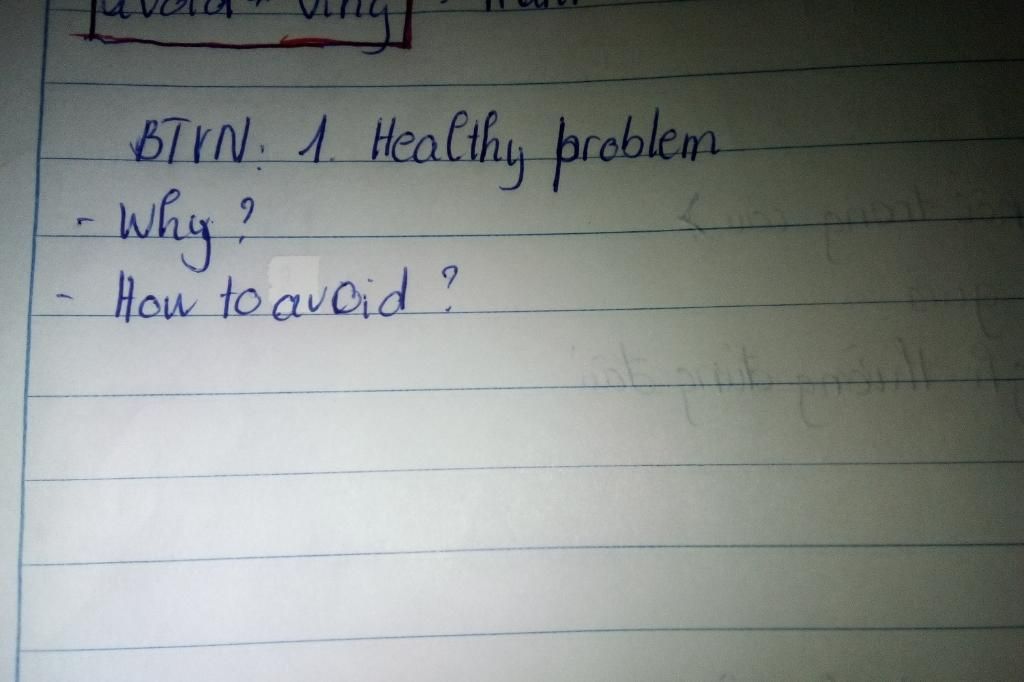 avoid + Ving
BTVN: 1. Healthy problem
- Why?
- How to avoid?